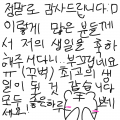 정말로 감사드립니다ㅁ
이렇게 많은 분들께
서 저의 생일을 축하
해주시다니.. 부끄럽네요
ㅠ (꾸벅) 최고의 생
일이 된 것 같습니다
모두 좋은하루 되
세요